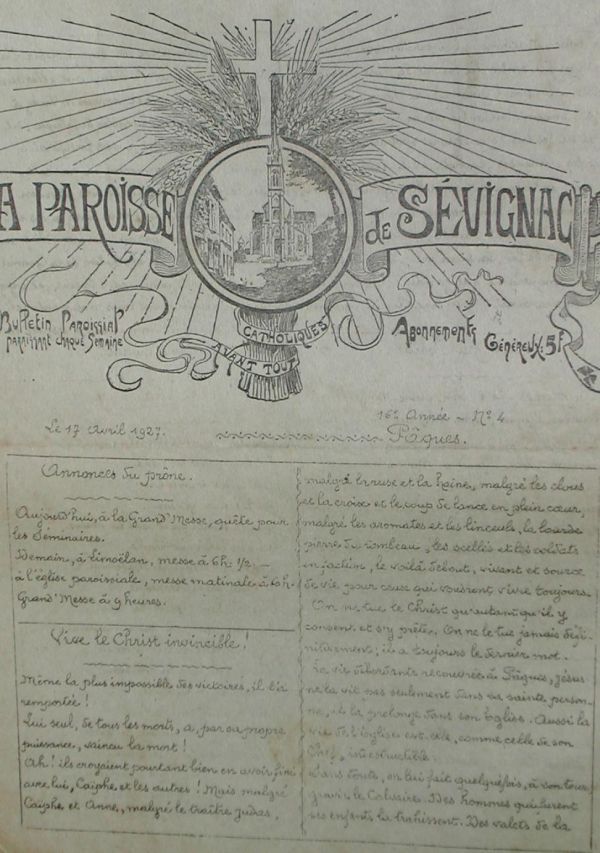 A PAROISSE de SÉVIGNAC
Bulletin Paroissial
PARAISSANT CHAQUE SEMAINE
CATHOLIQUES
AVANT TOUT
Abonnements
Généreux: 5f
16e Année - No 4
Le 17 Avril 1927.
Pâques.
Annonces du prône.
Aujourd'hui, à la Grand'Messe, quête pour
les Séminaires.
Demain, à Limoëlan, messe à 6h. 1/2. -
à l'église paroissiale, messe matinale à 6h.
Grand'Messe à 9 heures.
Vive le Christ invincible!
Même la plus impossible des victoires, il l'a
remportée!
Lui seul, de tous les morts, a, par sa propre
puissance, vaincu la mort!
Ah! ils croyaient pourtant bien en avoir fini
avec lui, Caïphe et les autres! Mais malgré
Caïphe et Anne, malgré le traître Judas,
malgré la ruse et la haine, malgré les clous
et la croix et le coup de lance en plein cœur,
malgré les aromates et les linceuls, la lourde
pierre du tombeau, les scellés et les soldats
en faction, le voilà debout, vivant et source
de vie pour ceux qui voudront vivre toujours.
On ne tue le Christ qu'autant qu'il y
consent et s'y prête. On ne le tue jamais défi-
nitivement; il a toujours le dernier mot.
La vie débordante recouvrée à Pâques, Jésus
ne la vit pas seulement dans sa sainte person-
ne, il la prolonge dans son Eglise. Aussi la
vie de l'église est-elle, comme celle de son
Chef, indestructible.
Sans doute, on lui fait quelquefois, à son tour,
gravir le Calvaire. Des hommes qui furent
ses enfants la trahissent. Des valets de la